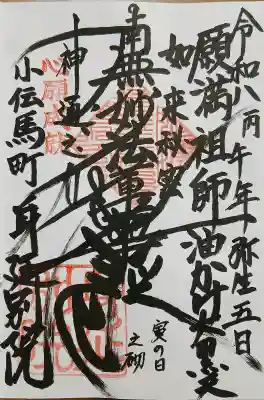 令和八丙午年弥生五日
願満祖師 油かけ大黒天
如来秘密
寅の日
之砌
南無妙法蓮華経
神通之力
心願成就
小伝馬町 身延別院